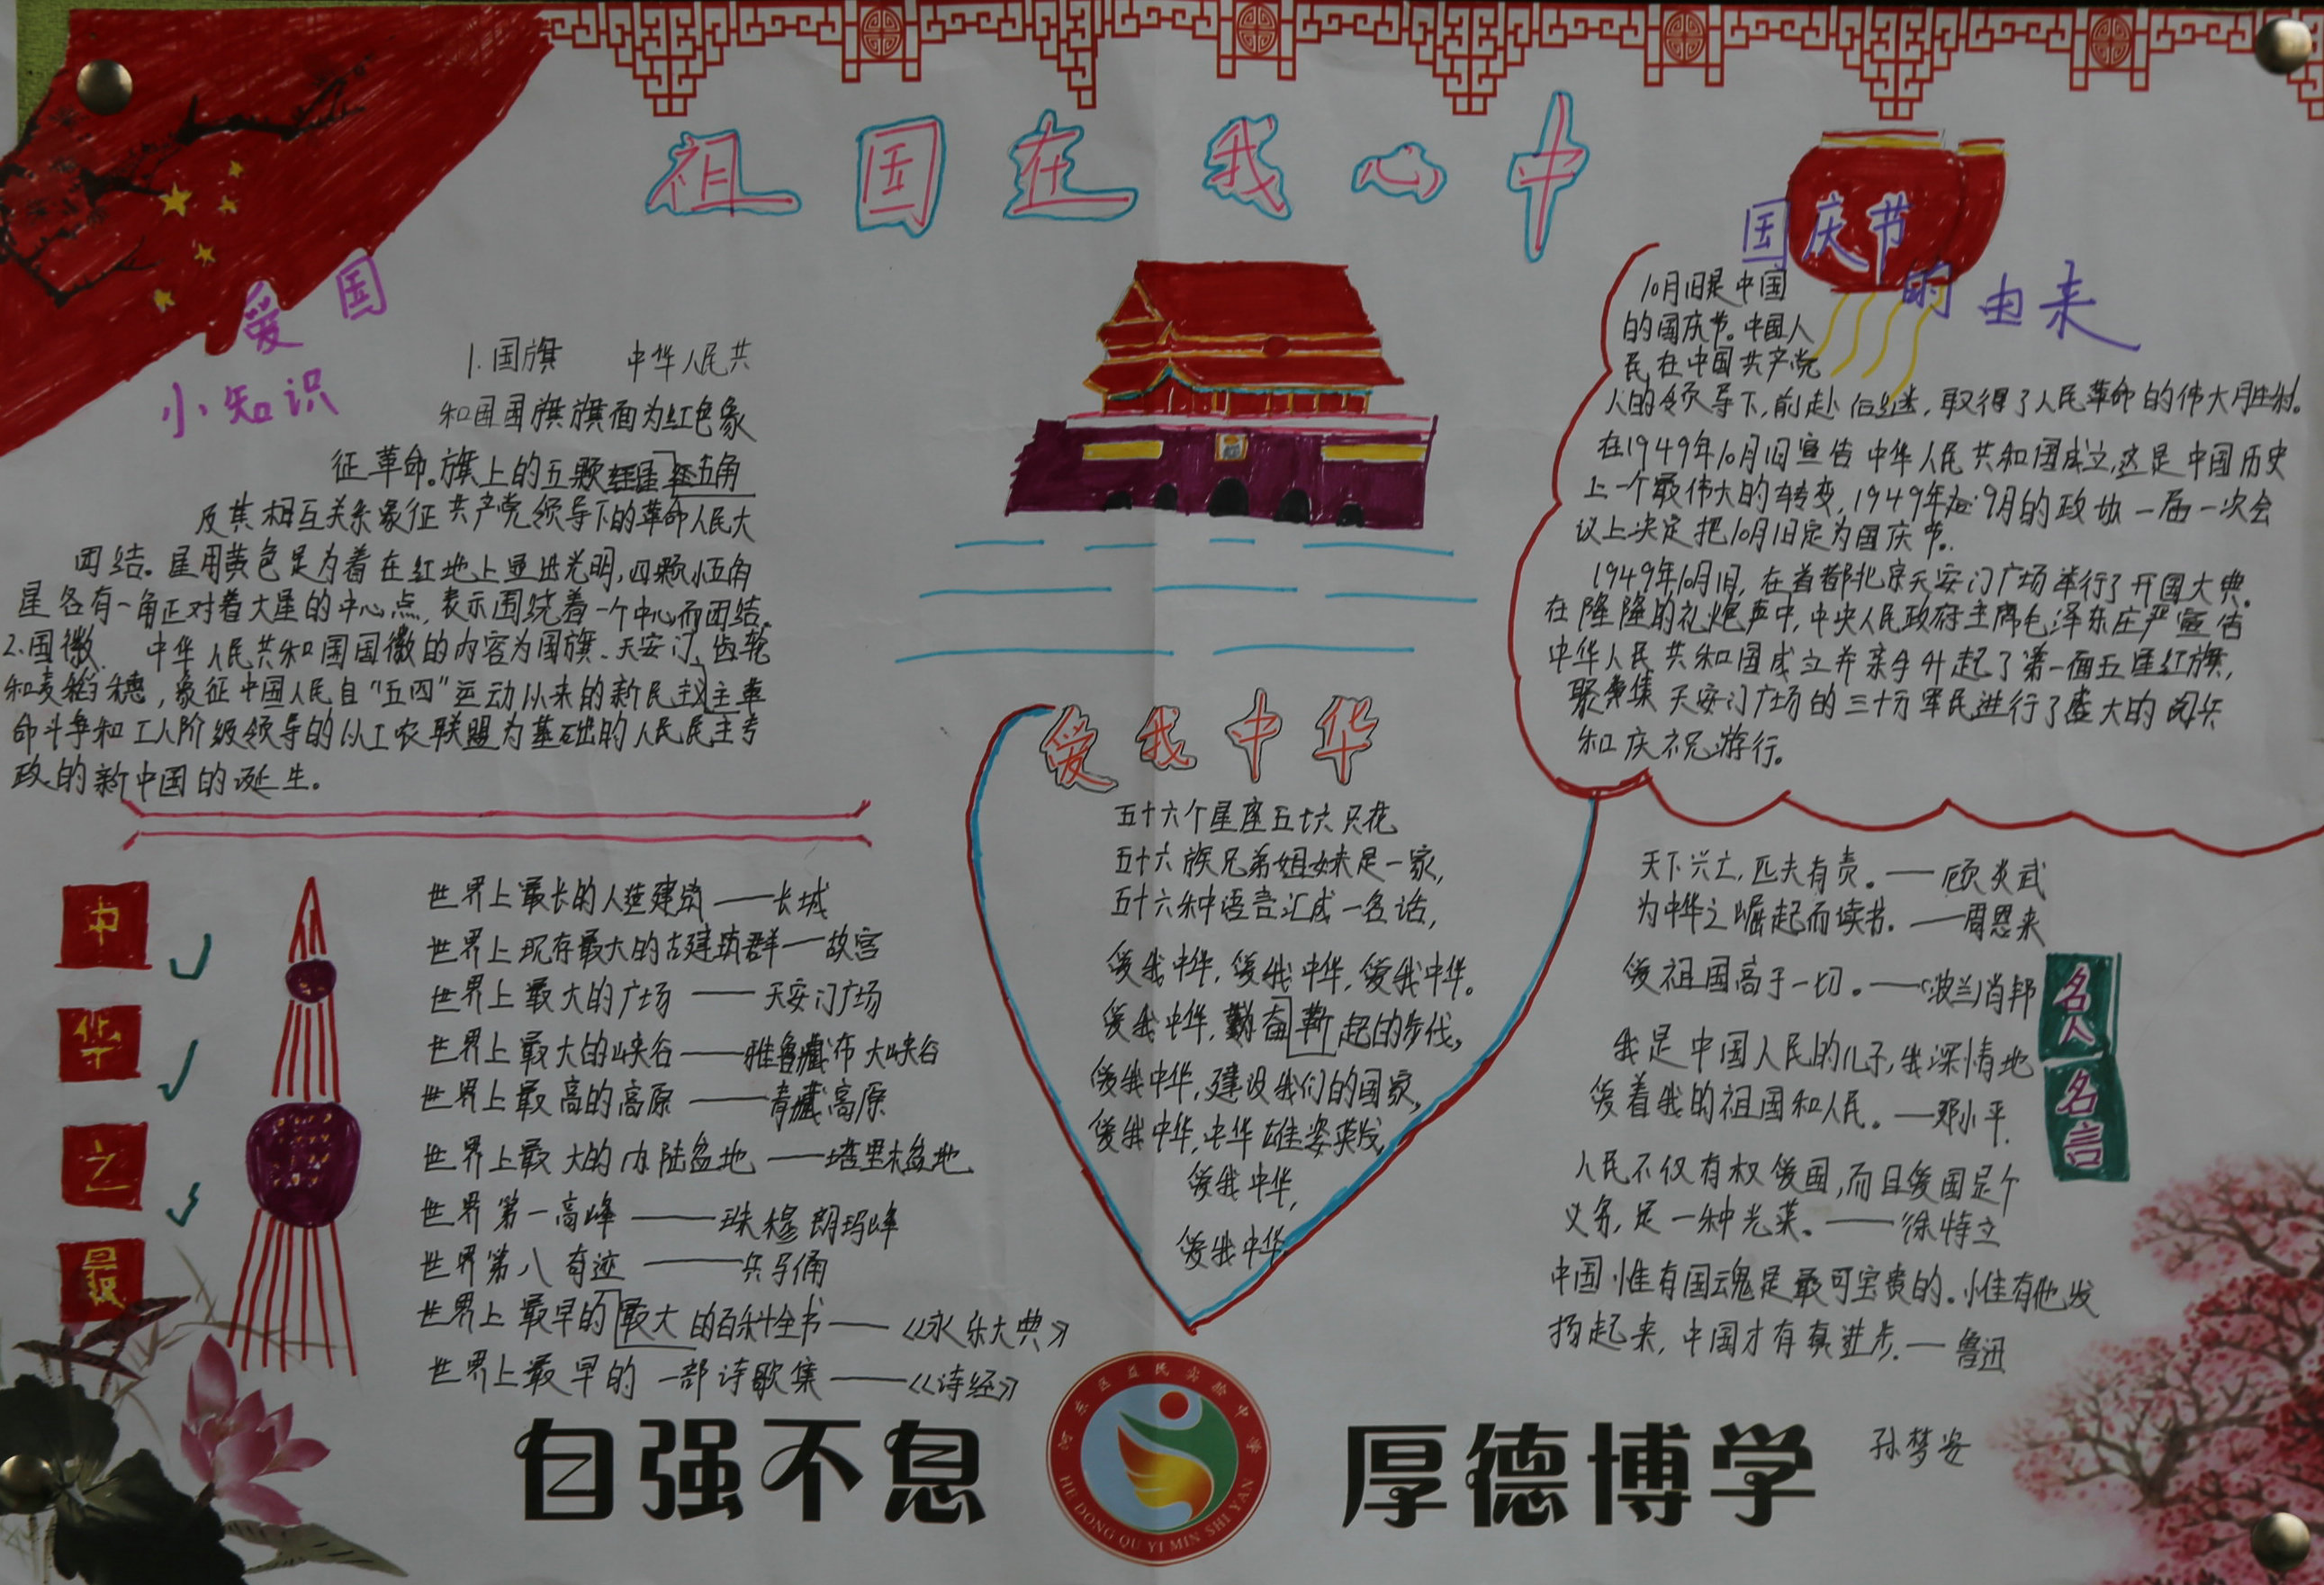 祖国在我心中
爱国
小知识
1.国旗 中华人民共
和国国旗旗面为红色象
征革命。旗上的五颗五角
及其相互关系象征共产党领导下的革命人民大
团结。星用黄色是为着在红地上显出光明,四颗小五角
星各有一角正对着大星的中心点,表示围绕着一个中心而团结。
2.国徽 中华人民共和国国徽的内容为国旗、天安门、齿轮
和麦稻穗,象征中国人民自“五四”运动以来的新民主义主革
命斗争和工人阶级领导的以工农联盟为基础的人民民主专
政的新中国的诞生。
国庆节
的由来
10月1日是中国
的国庆节。中国人
民在中国共产党
人的领导下,前赴后继,取得了人民革命的伟大胜利。
在1949年10月1日宣告中华人民共和国成立,这是中国历史
上一个最伟大的转变,1949年9月的政协一届一次会
议上决定把10月1日定为国庆节。
1949年10月1日,在首都北京天安门广场举行了开国大典。
在隆隆的礼炮声中,中央人民政府主席毛泽东庄严宣告
中华人民共和国成立并亲手升起了第一面五星红旗,
聚集天安门广场的三十万军民进行了盛大的阅兵
和庆祝游行。
中华之最
世界上最长的人造建筑——长城
世界上现存最大的古建筑群——故宫
世界上最大的广场——天安门广场
世界上最大的峡谷——雅鲁藏布大峡谷
世界上最高的高原——青藏高原
世界上最大的内陆盆地——塔里木盆地
世界第一高峰——珠穆朗玛峰
世界第八奇迹——兵马俑
世界上最早的最大的百科全书——《永乐大典》
世界上最早的一部诗歌集——《诗经》
爱我中华
五十六个星座五十六只花
五十六族兄弟姐妹是一家,
五十六种语言汇成一名话,
爱我中华,爱我中华,爱我中华。
爱我中华,奋靳起的步伐,
爱我中华,建设我们的国家,
爱我中华,中华雄姿英发
爱我中华,
爱我中华
名人名言
天下兴亡,匹夫有责。——顾炎武
为中华之崛起而读书。——周恩来
爱祖国高于一切。——(波兰)肖邦
我是中国人民的儿子,我深情地
爱着我的祖国和人民。——邓小平.
人民不仅有权爱国,而且爱国是个
义务,是一种光荣。——徐特立
中国惟有国魂是最可宝贵的。惟有他发
扬起来,中国才有真进步.——鲁迅
自强不息
河东区益民实验中学
HE DONG QU YI MIN SHI YAN
厚德博学
孙梦安